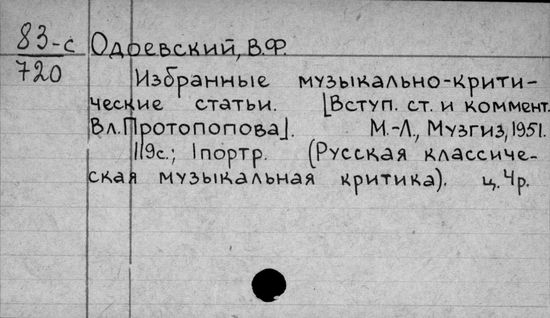 83-с Одоевский, В.Ф.
720 Избранные музыкально-крити-
ческие статьи. [Вступ. ст. и коммент.
Вл. Протопопова]. М.-Л., Музгиз, 1951.
119с.; 1портр. (Русская классиче-
ская музыкальная критика). ц. 4р.